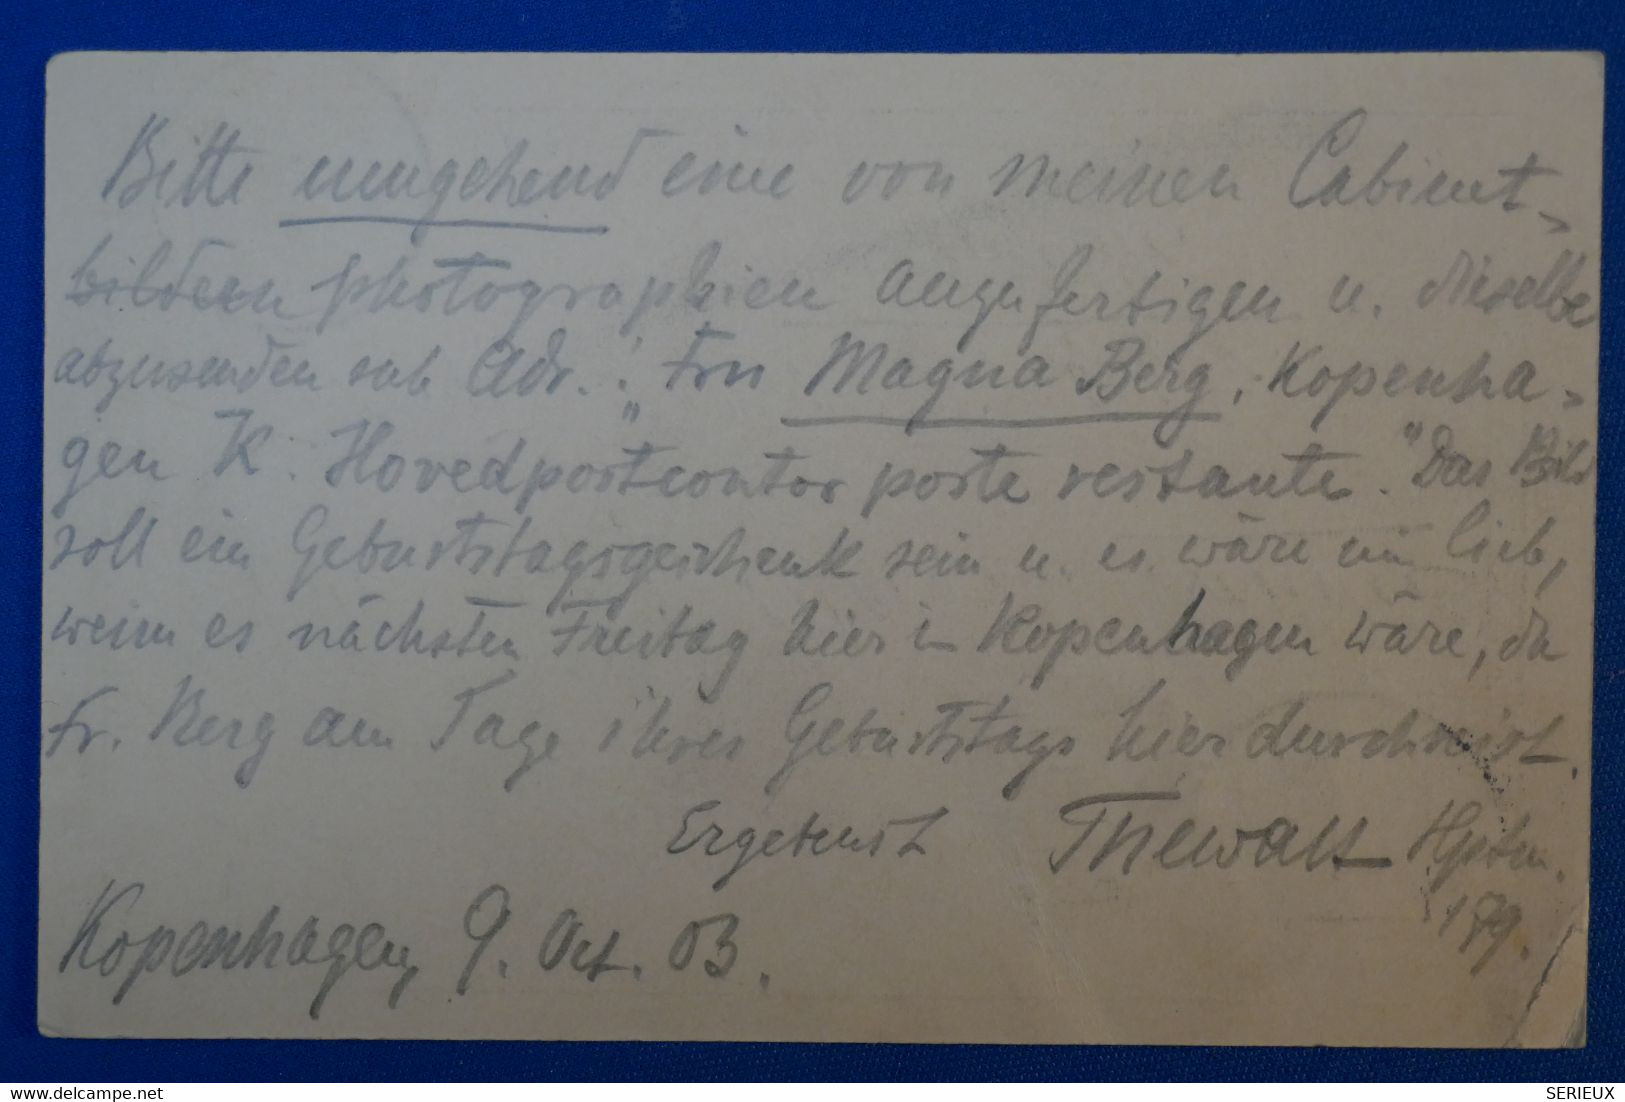 Bitte umgehend eine von meinen Cabinet-
bildern photographien anzufertigen u. dieselbe
abzusenden sub Adr.: „Fru Magna Berg, Kopenha-
gen K. Hovedpostcontor poste restante." Das Bild
soll ein Geburtstagsgeschenk sein u. es wäre mir lieb,
wenn es nächsten Freitag hier in Kopenhagen wäre, da
Fr. Berg am Tage ihres Geburtstags hier durchreist.
Ergebenst Thewalt Hptm.
Kopenhagen, 9. Oct. 03.
SERIEUX